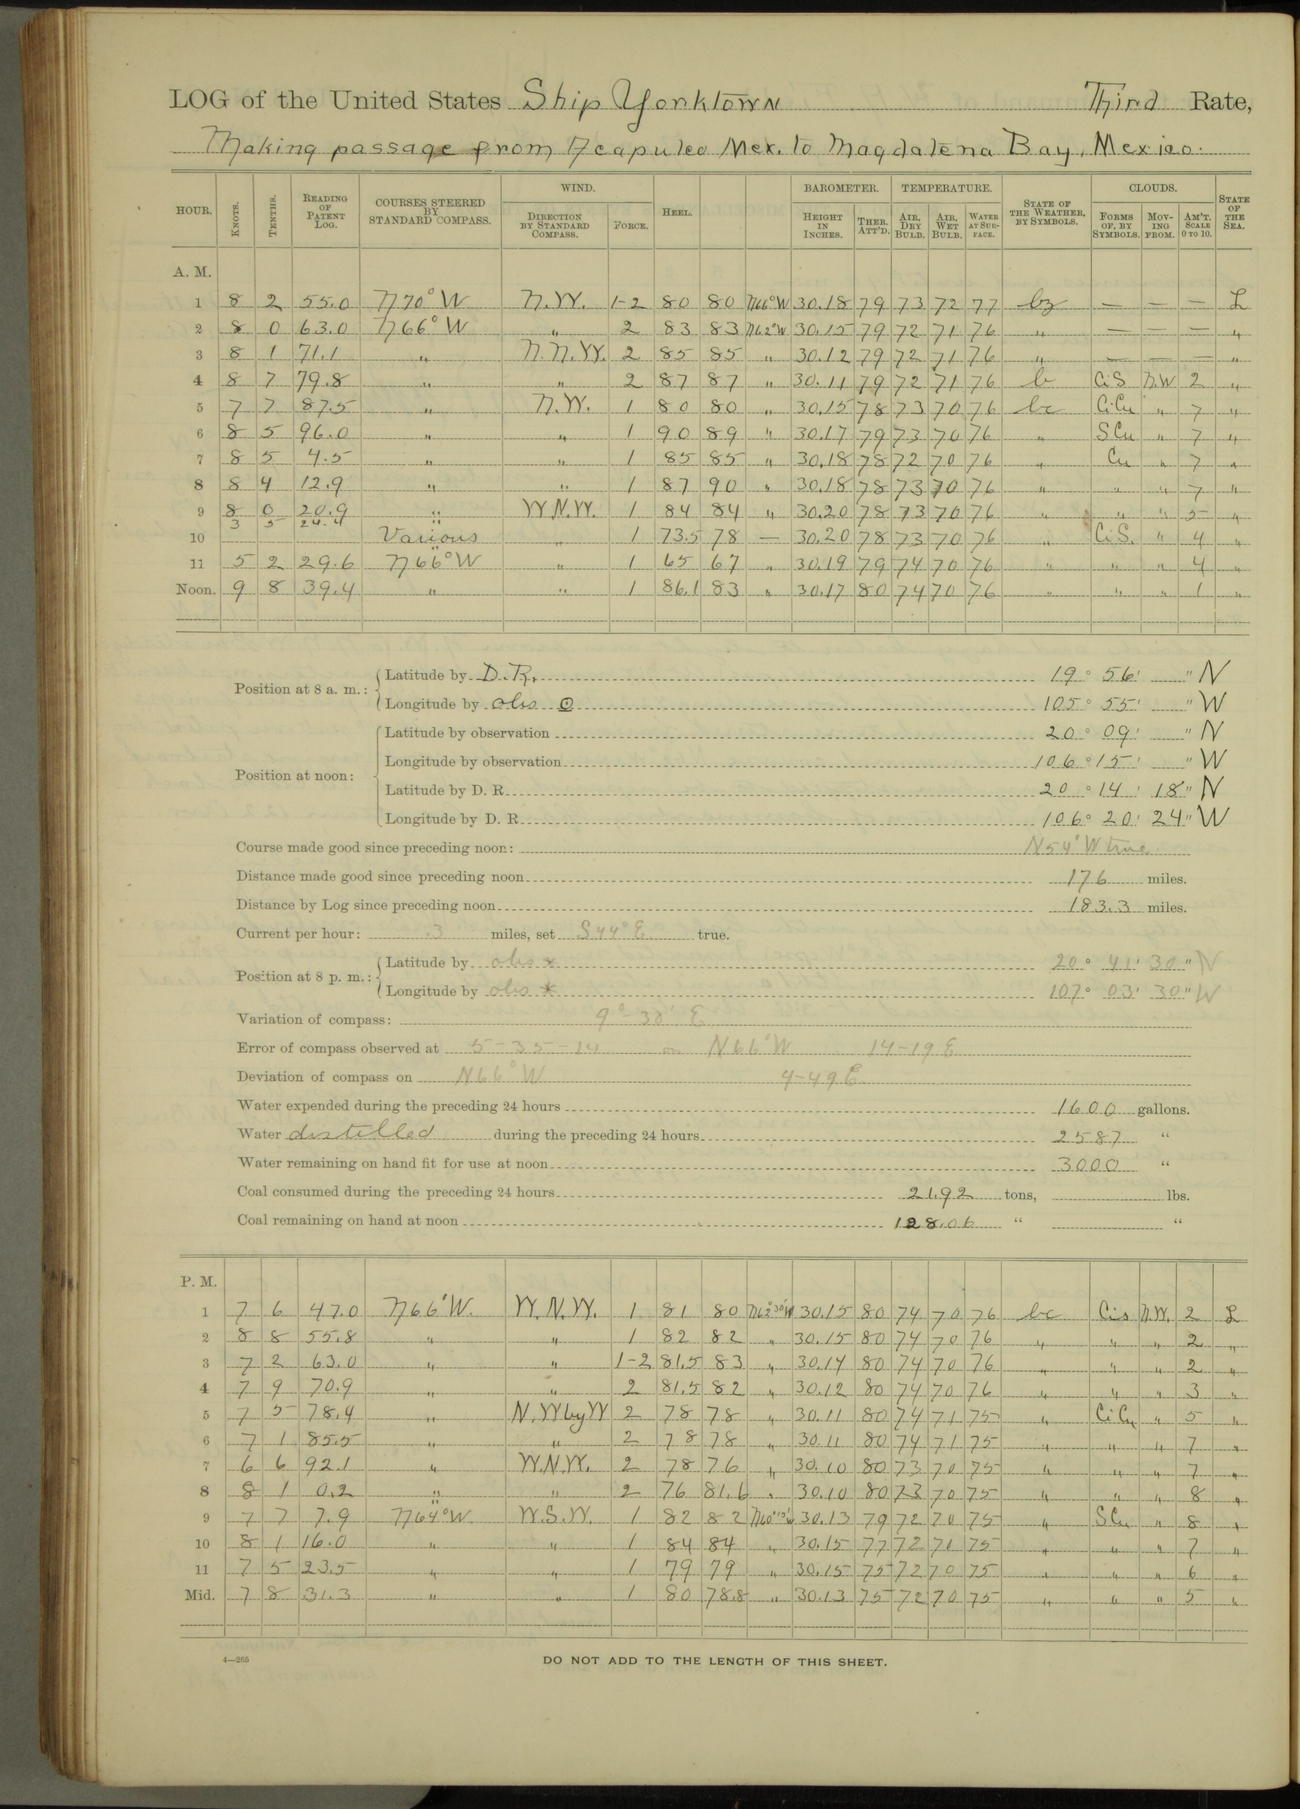 LOG of the United States Ship Yorktown Third Rate,
Making passage from Acapulco Mex. to Magdalena Bay, Mexico.
HOUR. KNOTS. TENTHS. READING OF PATENT LOG. COURSES STEERED BY STANDARD COMPASS. WIND. DIRECTION BY STANDARD COMPASS. FORCE. HEEL. BAROMETER. HEIGHT IN INCHES. THER. ATT'D. TEMPERATURE. AIR, DRY BULB. AIR, WET BULB. WATER AT SURFACE. STATE OF THE WEATHER, BY SYMBOLS. CLOUDS. FORMS OF, BY SYMBOLS. MOVING FROM. AM'T. SCALE 0 TO 10. STATE OF THE SEA.
A. M.
1 8 2 55.0 N70°W N.W. 1-2 80 80 N66°W 30.18 79 73 72 77 bz — — — L
2 8 0 63.0 N66°W " 2 83 83 N62°W 30.15 79 72 71 76 " — — — "
3 8 1 71.1 " N.N.W. 2 85 85 " 30.12 79 72 71 76 " — — — "
4 8 7 79.8 " " 2 87 87 " 30.11 79 72 71 76 b CiS N.W 2 "
5 7 7 87.5 " N.W. 1 80 80 " 30.15 78 73 70 76 bc CiCu " 7 "
6 8 5 96.0 " " 1 90 89 " 30.17 79 73 70 76 " SCu " 7 "
7 8 5 4.5 " " 1 85 85 " 30.18 78 72 70 76 " Cu " 7 "
8 8 4 12.9 " " 1 87 90 " 30.18 78 73 70 76 " " " 7 "
9 8 0 20.9 " W.N.W. 1 84 84 " 30.20 78 73 70 76 " " " 5 "
3 5 24.4 "
10 Various " 1 73.5 78 — 30.20 78 73 70 76 " CiS. " 4 "
11 5 2 29.6 N66°W " 1 65 67 " 30.19 79 74 70 76 " " " 4 "
Noon. 9 8 39.4 " " 1 86.1 83 " 30.17 80 74 70 76 " " " 1 "
Position at 8 a. m.: Latitude by D.R. 19° 56' " N
Longitude by obs ⊙ 105° 55' " W
Position at noon: Latitude by observation 20° 09' " N
Longitude by observation 106° 15' " W
Latitude by D. R. 20° 14' 18" N
Longitude by D. R. 106° 20' 24" W
Course made good since preceding noon: N54°W true
Distance made good since preceding noon 176 miles.
Distance by Log since preceding noon 183.3 miles.
Current per hour: .3 miles, set S44°E true.
Position at 8 p. m.: Latitude by obs * 20° 41' 30" N
Longitude by obs * 107° 03' 30" W
Variation of compass: 9°-30' E
Error of compass observed at 5-35-14 on N66°W 14-19 E
Deviation of compass on N66°W 4-49 E.
Water expended during the preceding 24 hours 1600 gallons.
Water distilled during the preceding 24 hours 2587 "
Water remaining on hand fit for use at noon 3000 "
Coal consumed during the preceding 24 hours 21.92 tons, lbs.
Coal remaining on hand at noon 128.06 " "
P. M.
1 7 6 47.0 N66°W. W.N.W. 1 81 80 N62°30'W 30.15 80 74 70 76 bc Cis N.W. 2 L
2 8 8 55.8 " " 1 82 82 " 30.15 80 74 70 76 " " " 2 "
3 7 2 63.0 " " 1-2 81.5 83 " 30.14 80 74 70 76 " " " 2 "
4 7 9 70.9 " " 2 81.5 82 " 30.12 80 74 70 76 " " " 3 "
5 7 5 78.4 " N.WbyW 2 78 78 " 30.11 80 74 71 75 " CiCu " 5 "
6 7 1 85.5 " " 2 78 78 " 30.11 80 74 71 75 " " " 7 "
7 6 6 92.1 " W.N.W. 2 78 76 " 30.10 80 73 70 75 " " " 7 "
8 8 1 0.2 " " 2 76 81.6 " 30.10 80 73 70 75 " " " 8 "
9 7 7 7.9 N64°W. W.S.W. 1 82 82 30.13 79 72 70 75 " SCu " 8 "
10 8 1 16.0 " " 1 84 84 " 30.15 77 72 71 75 " " " 7 "
11 7 5 23.5 " " 1 79 79 " 30.15 75 72 70 75 " " " 6 "
Mid. 7 8 31.3 " " 1 80 78.8 " 30.13 75 72 70 75 " " " 5 "
4—265
DO NOT ADD TO THE LENGTH OF THIS SHEET.